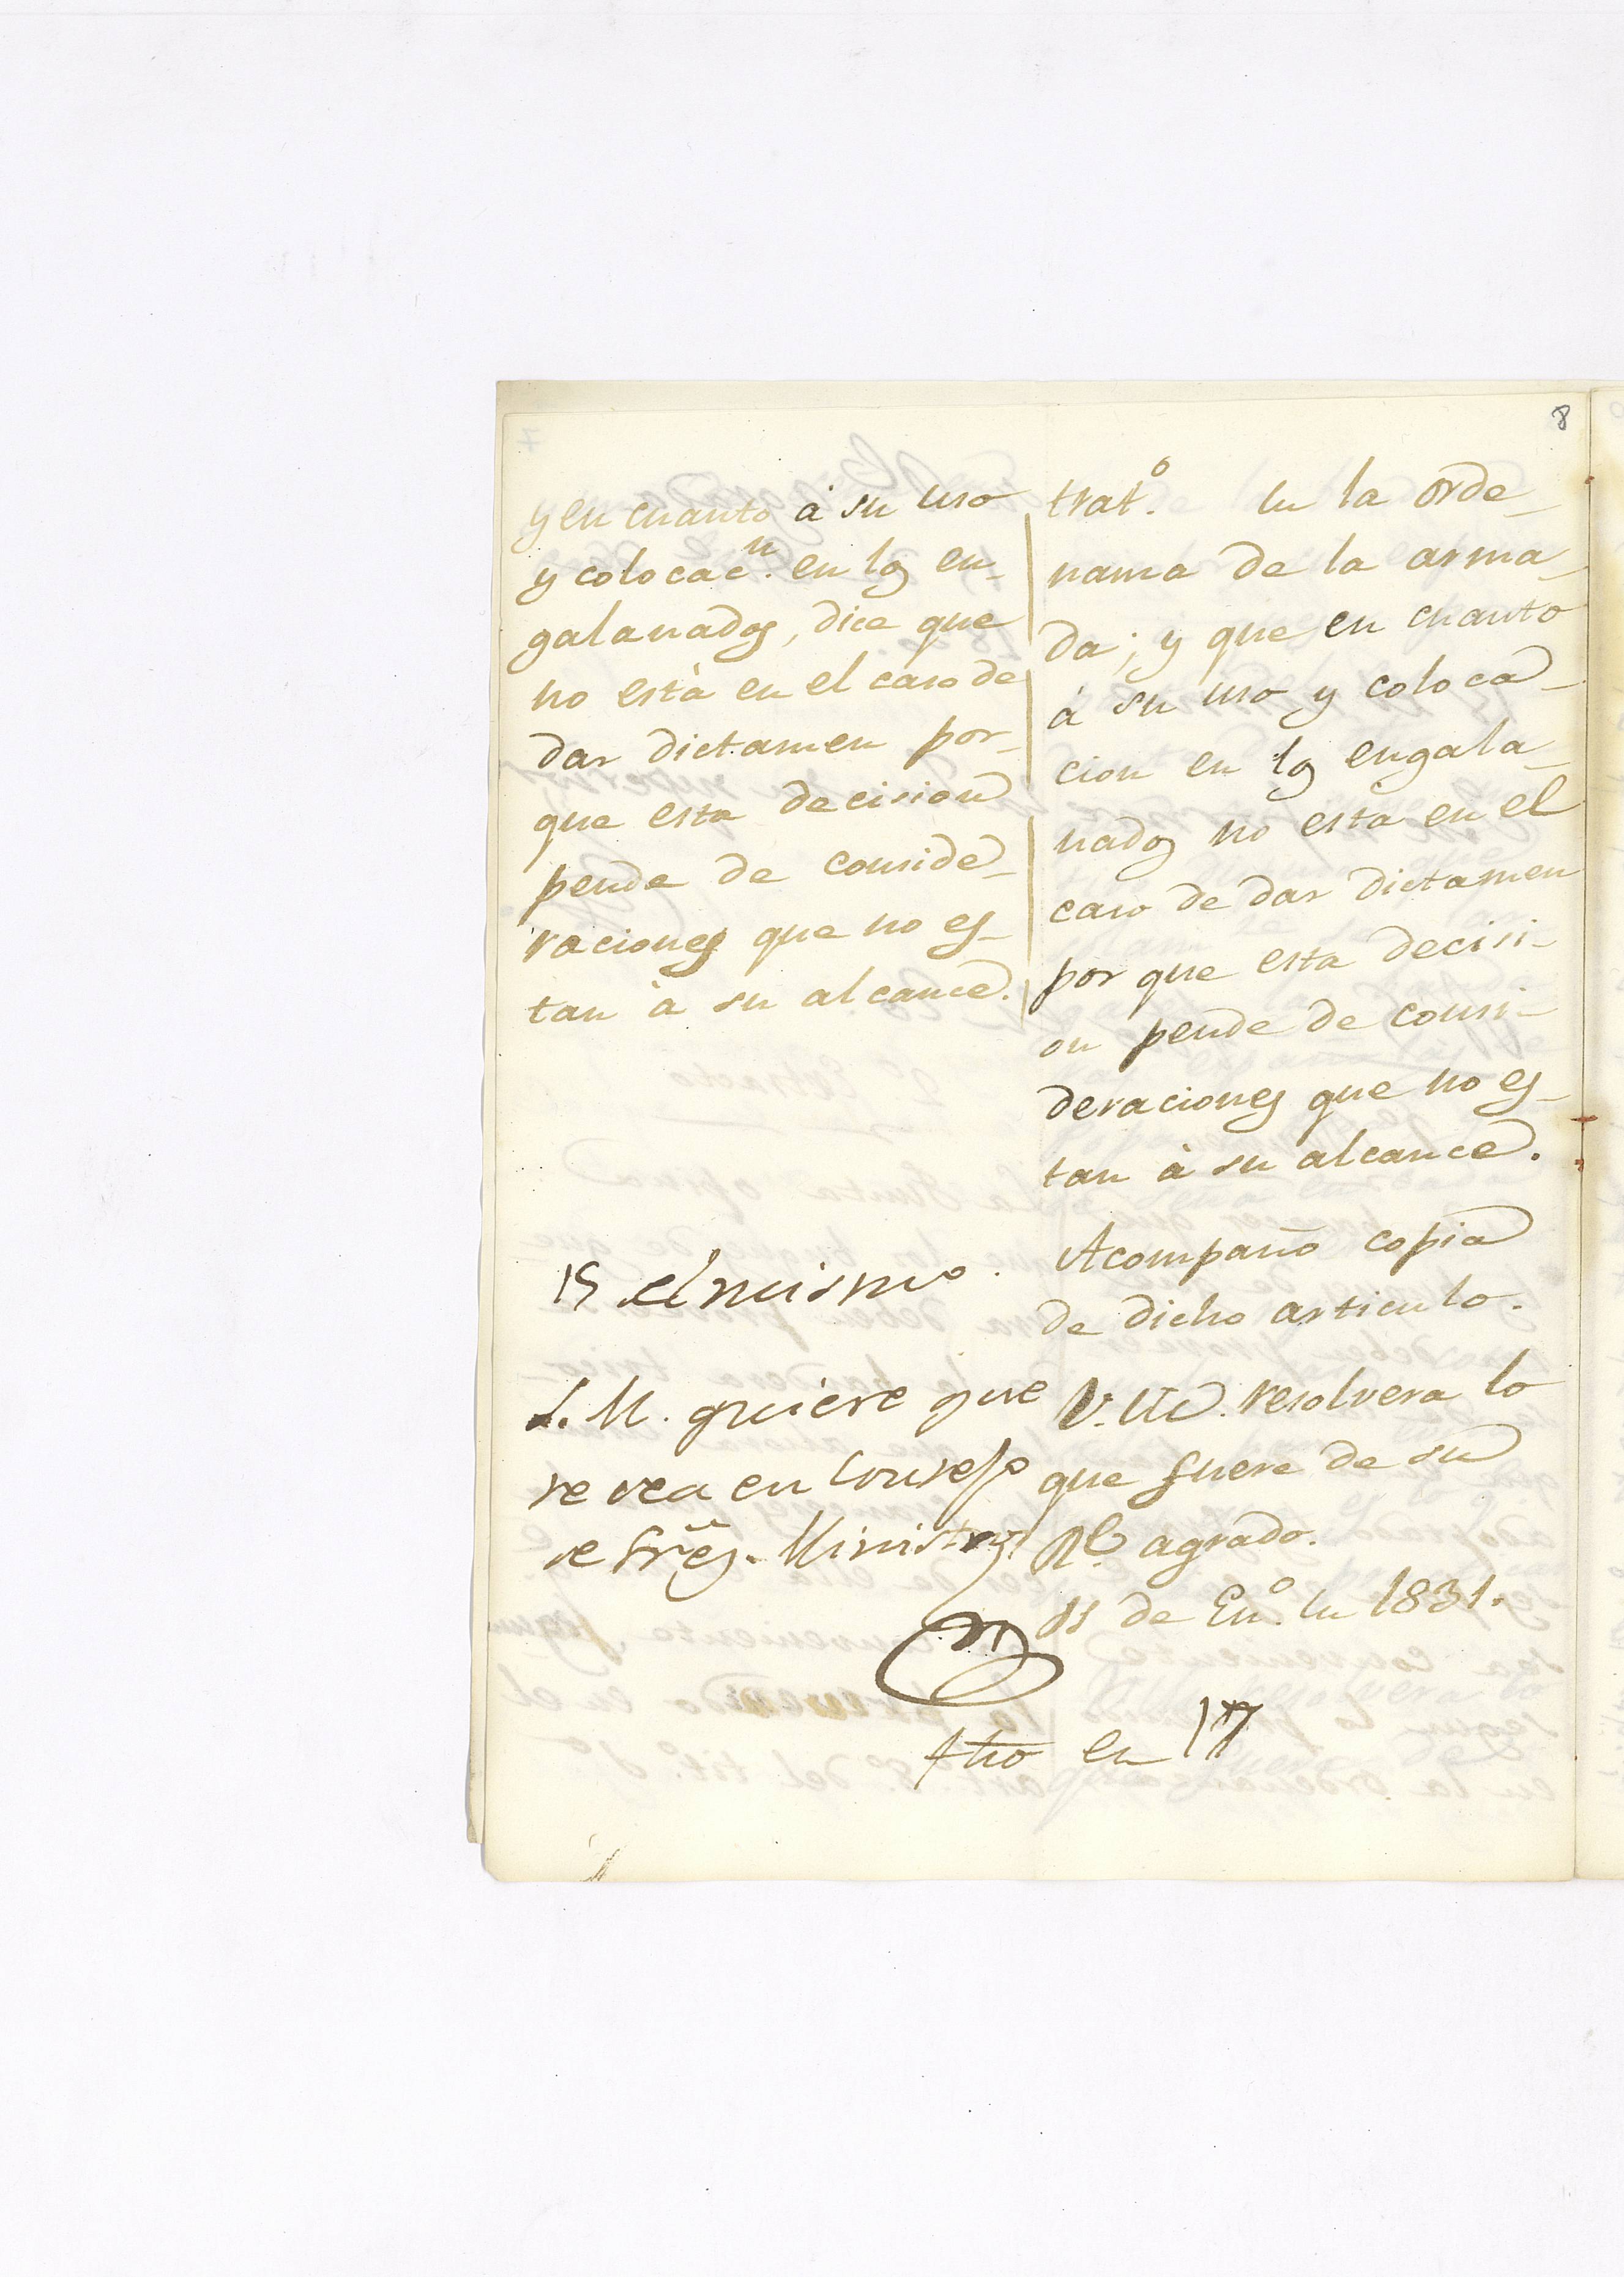 8
y en cuanto à su uso
y colocac.n en los en-
galanados, dice que
no està en el caso de
dar dictamen por-
que esta decision
pende de conside-
raciones que no es-
tan à su alcance.
15 el mismo.
S. M. quiere que
se vea en Consejo
de Sres. Ministros
trat.o de la orde-
nanza de la arma-
da; y que en cuanto
à su uso y coloca-
cion en los engala-
nados no està en el
caso de dar dictamen
por que esta decisi-
on pende de consi-
deraciones que no es-
tan à su alcance.
Acompaño copia
de dicho articulo.
V. M. resolvera lo
que fuere de su
Rl. agrado.
11 de En.o de 1831.
fho en 17